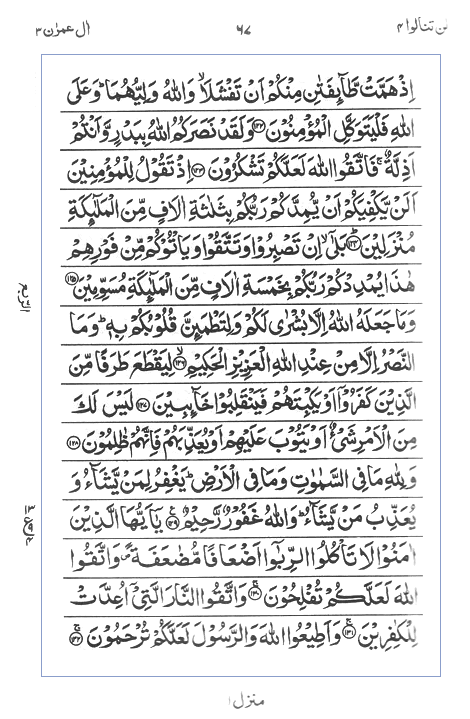 لن تنالوا ۴ ۶۷ ال عمرٰن ۳
اِذْ هَمَّتْ طَّآئِفَتٰنِ مِنْكُمْ اَنْ تَفْشَلَا ۙ وَاللّٰهُ وَلِيُّهُمَا ؕ وَعَلَى
اللّٰهِ فَلْيَتَوَكَّلِ الْمُؤْمِنُوْنَ ﴿۱۲۲﴾ وَلَقَدْ نَصَرَكُمُ اللّٰهُ بِبَدْرٍ وَّاَنْتُمْ
اَذِلَّةٌ ۚ فَاتَّقُوا اللّٰهَ لَعَلَّكُمْ تَشْكُرُوْنَ ﴿۱۲۳﴾ اِذْ تَقُوْلُ لِلْمُؤْمِنِيْنَ
اَلَنْ يَّكْفِيَكُمْ اَنْ يُّمِدَّكُمْ رَبُّكُمْ بِثَلٰثَةِ اٰلَافٍ مِّنَ الْمَلٰٓئِكَةِ
مُنْزَلِيْنَ ﴿۱۲۴﴾ بَلٰٓى ۙ اِنْ تَصْبِرُوْا وَتَتَّقُوْا وَيَاْتُوْكُمْ مِّنْ فَوْرِهِمْ
هٰذَا يُمْدِدْكُمْ رَبُّكُمْ بِخَمْسَةِ اٰلَافٍ مِّنَ الْمَلٰٓئِكَةِ مُسَوِّمِيْنَ ﴿۱۲۵﴾
وَمَا جَعَلَهُ اللّٰهُ اِلَّا بُشْرٰى لَكُمْ وَلِتَطْمَئِنَّ قُلُوْبُكُمْ بِهٖ ؕ وَمَا
النَّصْرُ اِلَّا مِنْ عِنْدِ اللّٰهِ الْعَزِيْزِ الْحَكِيْمِ ﴿۱۲۶﴾ لِيَقْطَعَ طَرَفًا مِّنَ
الَّذِيْنَ كَفَرُوْٓا اَوْ يَكْبِتَهُمْ فَيَنْقَلِبُوْا خَآئِبِيْنَ ﴿۱۲۷﴾ لَيْسَ لَكَ
مِنَ الْاَمْرِ شَيْءٌ اَوْ يَتُوْبَ عَلَيْهِمْ اَوْ يُعَذِّبَهُمْ فَاِنَّهُمْ ظٰلِمُوْنَ ﴿۱۲۸﴾
وَلِلّٰهِ مَا فِي السَّمٰوٰتِ وَمَا فِي الْاَرْضِ ؕ يَغْفِرُ لِمَنْ يَّشَآءُ وَ
يُعَذِّبُ مَنْ يَّشَآءُ ؕ وَاللّٰهُ غَفُوْرٌ رَّحِيْمٌ ﴿۱۲۹﴾ يٰٓاَيُّهَا الَّذِيْنَ
اٰمَنُوْا لَا تَاْكُلُوا الرِّبٰٓوا اَضْعَافًا مُّضٰعَفَةً ۪ وَاتَّقُوا
اللّٰهَ لَعَلَّكُمْ تُفْلِحُوْنَ ﴿۱۳۰﴾ وَاتَّقُوا النَّارَ الَّتِيْٓ اُعِدَّتْ
لِلْكٰفِرِيْنَ ﴿۱۳۱﴾ وَاَطِيْعُوا اللّٰهَ وَالرَّسُوْلَ لَعَلَّكُمْ تُرْحَمُوْنَ ﴿۱۳۲﴾
الربع
منزل ۱